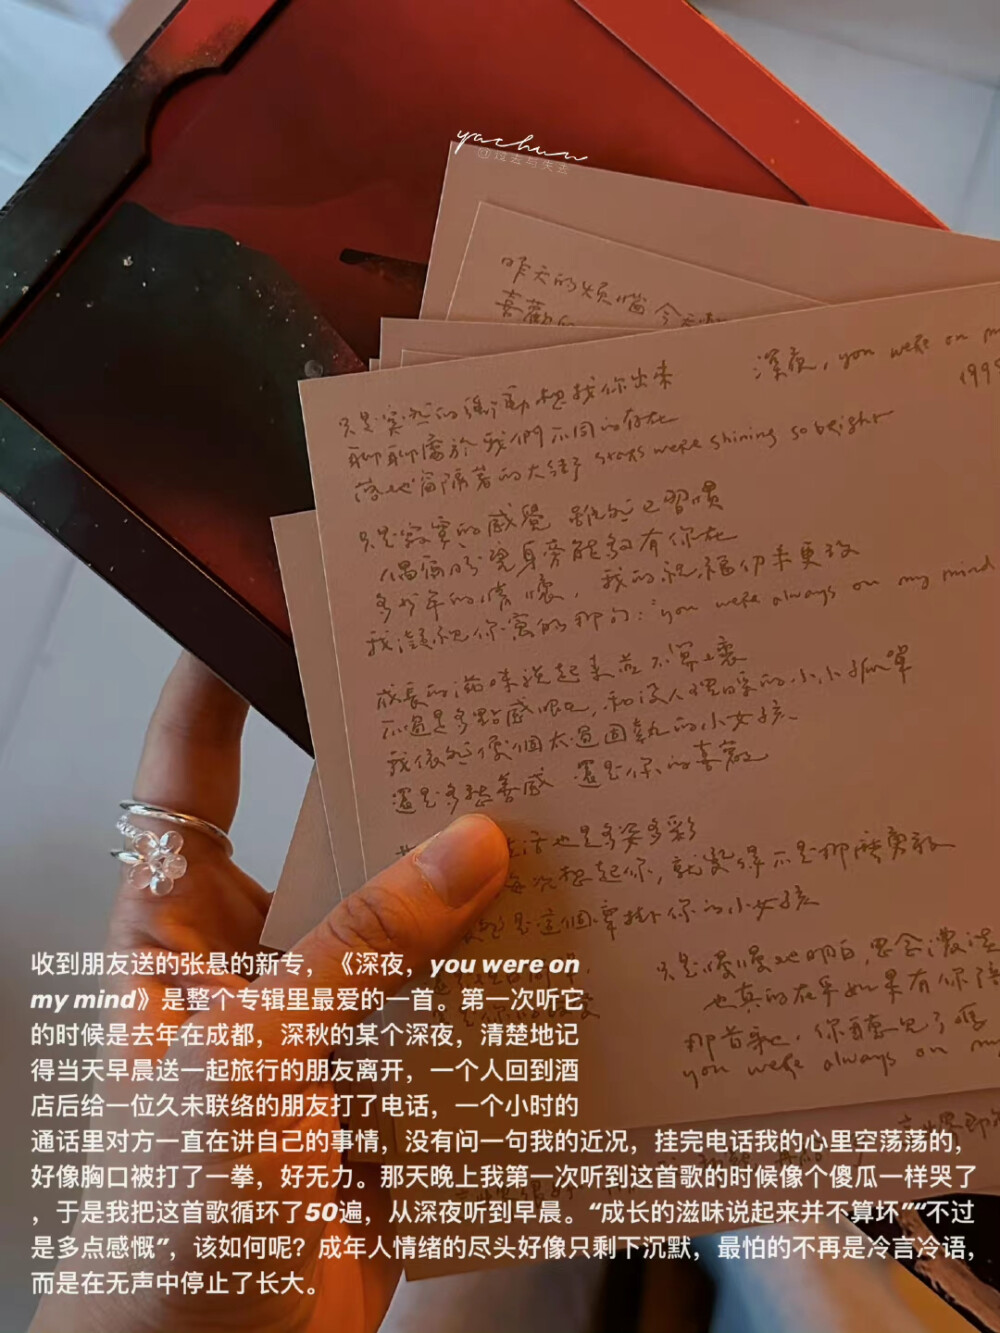 yachun
昨天的煩惱 今天
喜歡的
深夜, you were on m
199
只是突然的衝動想找你出來
聊聊處於我們不同的存在
落地窗隔著的大街 stars were shining so bright
只是寂寞的感覺 雖然已習慣
偶爾盼望身旁能夠有你在
多少年的情懷, 我的祝福仍未更改
我凝視你寫的那句: you were always on my mind
成長的滋味說起來並不算壞
不過是多點感慨, 和沒人理睬的小小孤單
我依然像個太過固執的小女孩、
還是多愁善感 還是你的喜歡
生活也是多姿多彩
每次想起你, 就變得不是那麼勇敢
是這個牽掛你的小女孩
只是慢慢地明白, 思念濃淡
也真的在乎如果有你陪
那首歌, 你聽見了嗎
you were always on my
收到朋友送的张悬的新专，《深夜，you were on
my mind》是整个专辑里最爱的一首。第一次听它
的时候是去年在成都，深秋的某个深夜，清楚地记
得当天早晨送一起旅行的朋友离开，一个人回到酒
店后给一位久未联络的朋友打了电话，一个小时的
通话里对方一直在讲自己的事情，没有问一句我的近况，挂完电话我的心里空荡荡的，
好像胸口被打了一拳，好无力。那天晚上我第一次听到这首歌的时候像个傻瓜一样哭了
，于是我把这首歌循环了50遍，从深夜听到早晨。“成长的滋味说起来并不算坏”“不过
是多点感慨”，该如何呢？成年人情绪的尽头好像只剩下沉默，最怕的不再是冷言冷语，
而是在无声中停止了长大。